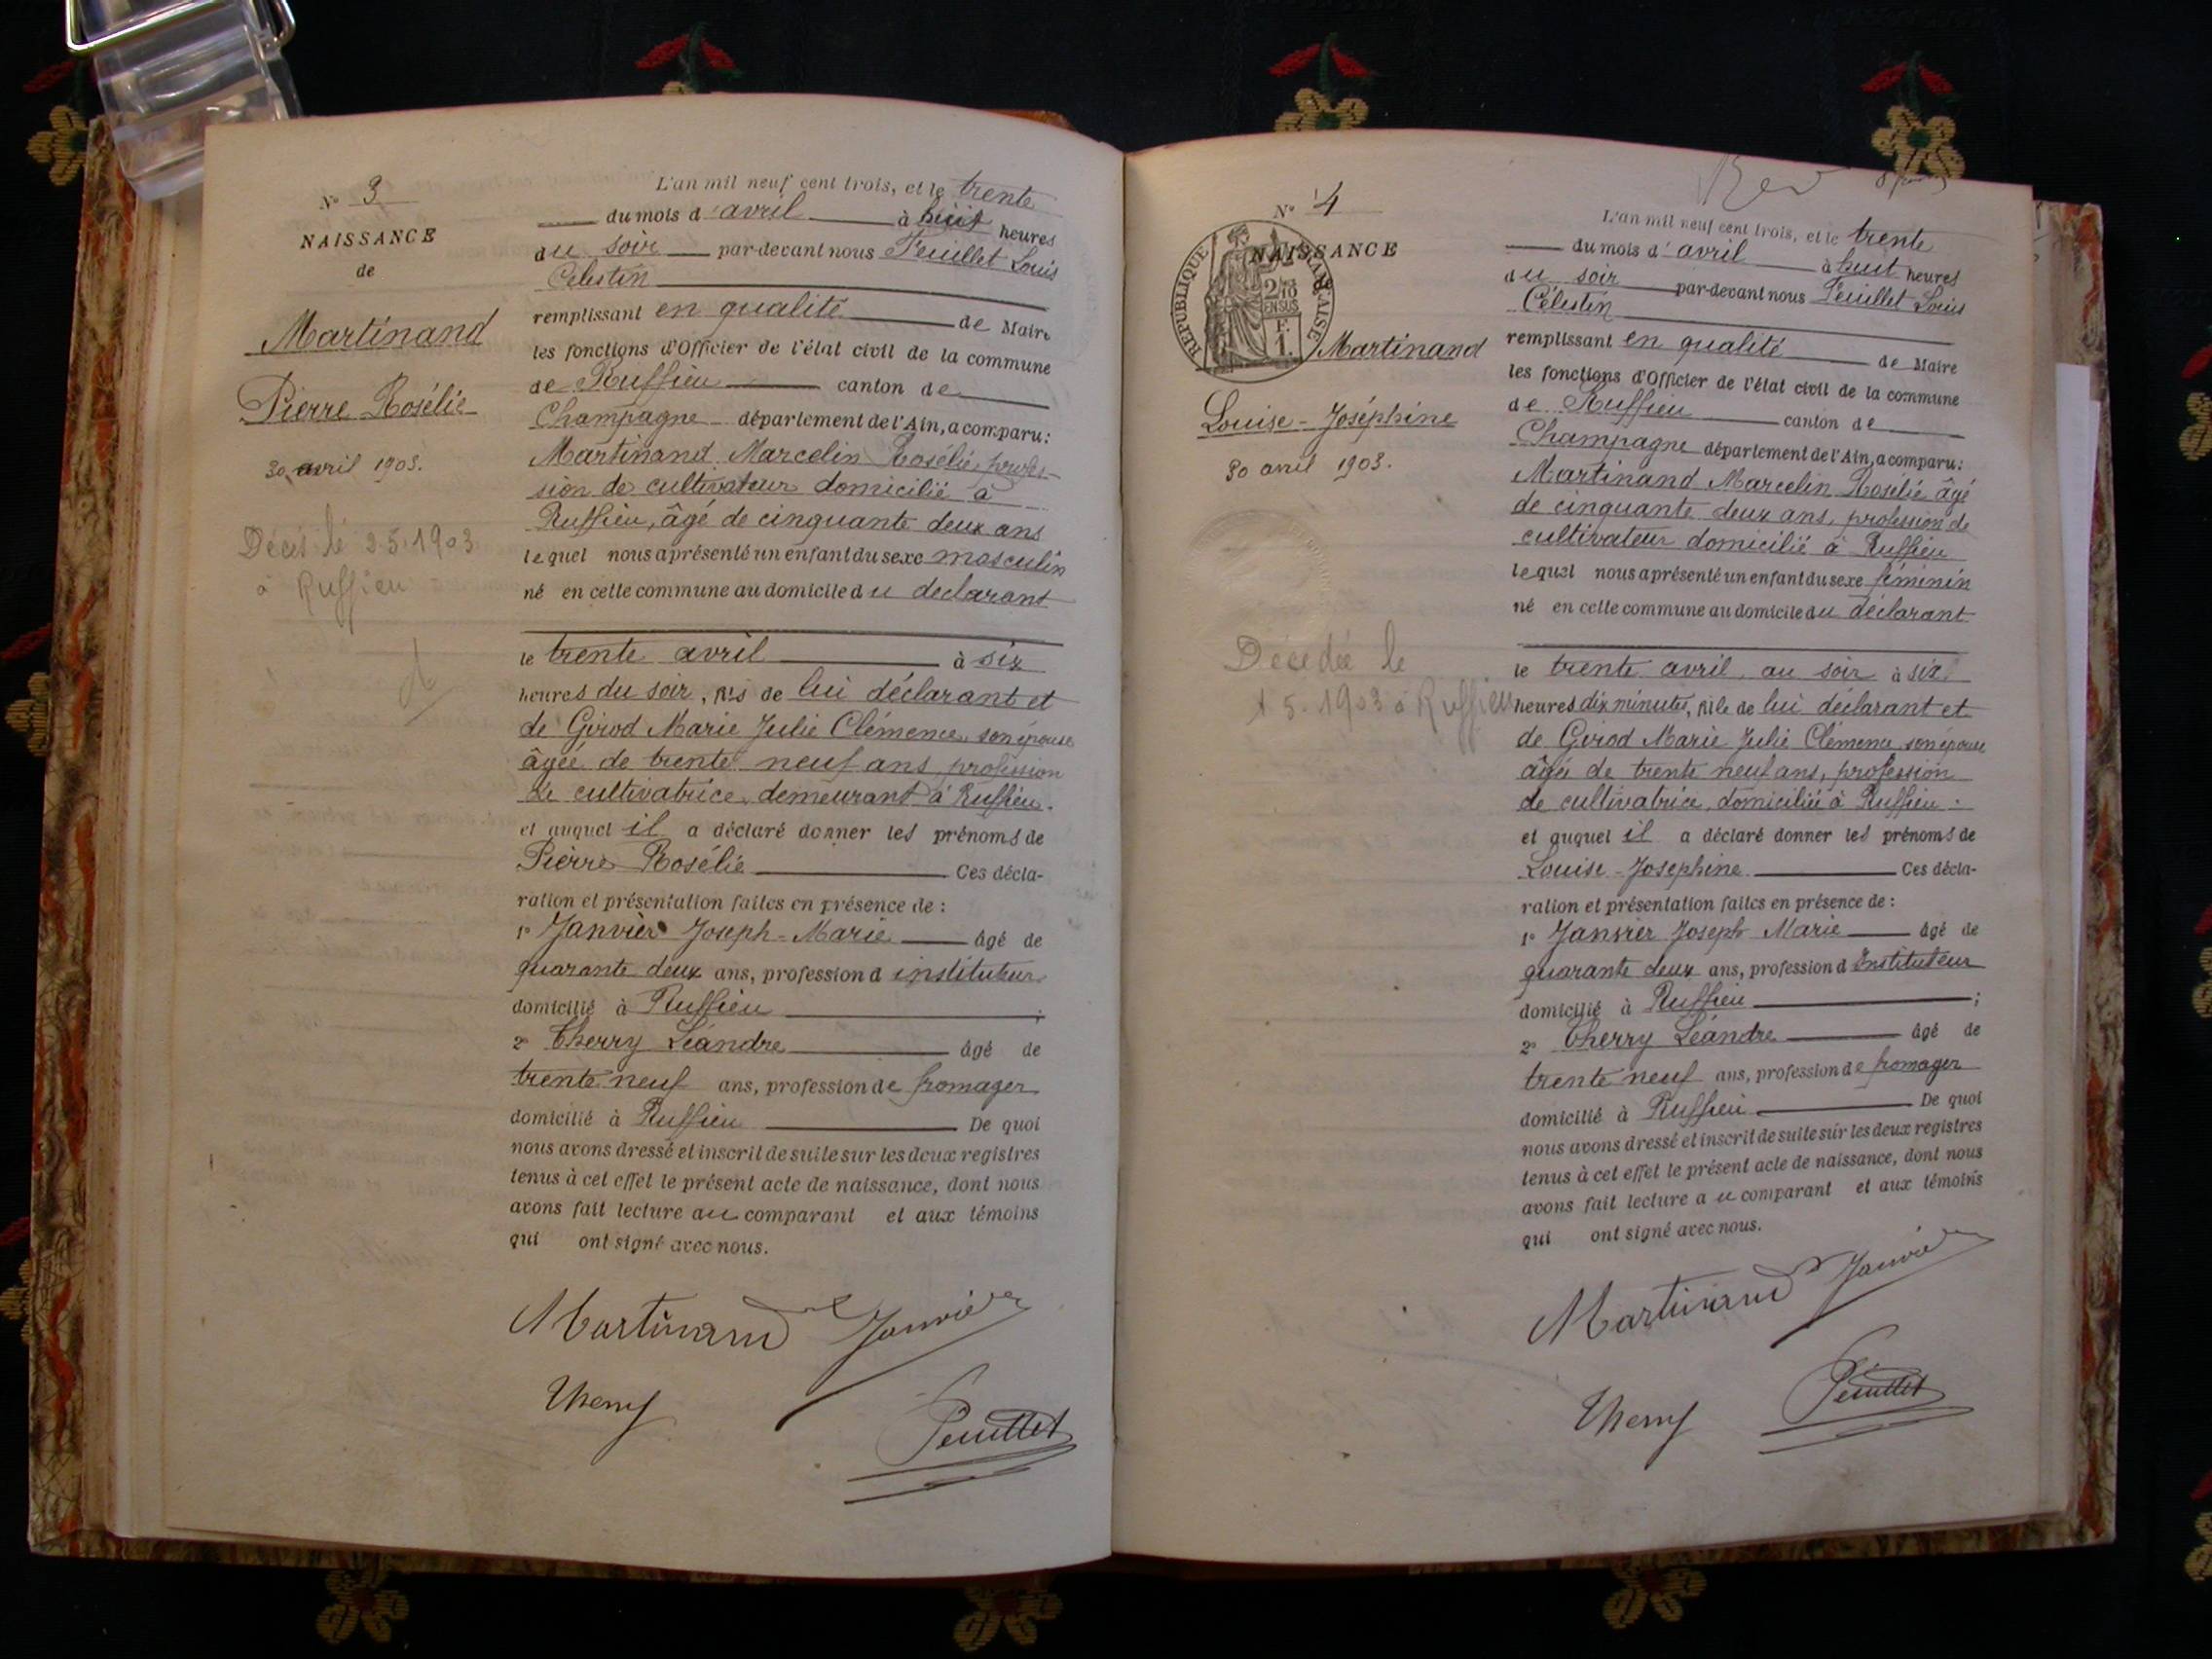 N° 3
NAISSANCE
de
Martinand
Pierre Rosélie
30 avril 1903.
Décès le 2.5.1903
à Ruffieu
L'an mil neuf cent trois, et le trente
du mois d'avril à huit heures
du soir par-devant nous Feuillet Louis
Célestin
remplissant en qualité de Maire
les fonctions d'Officier de l'état civil de la commune
de Ruffieu canton de
Champagne département de l'Ain, a comparu :
Martinand Marcelin Rosélie, profes-
sion de cultivateur domicilié à
Ruffieu, âgé de cinquante deux ans
lequel nous a présenté un enfant du sexe masculin
né en cette commune au domicile du déclarant
le trente avril à six
heures du soir, fils de lui déclarant et
de Girod Marie Julie Clémence, son épouse
âgée de trente neuf ans, profession
de cultivatrice, demeurant à Ruffieu.
et auquel il a déclaré donner les prénoms de
Pierre Rosélie Ces décla-
ration et présentation faites en présence de :
1° Janvier Joseph-Marie âgé de
quarante deux ans, profession d instituteur
domicilié à Ruffieu ;
2° Cherry Léandre âgé de
trente neuf ans, profession de fromager
domicilié à Ruffieu De quoi
nous avons dressé et inscrit de suite sur les deux registres
tenus à cet effet le présent acte de naissance, dont nous
avons fait lecture au comparant et aux témoins
qui ont signé avec nous.
Martinand Janvier
Cherry
Feuillet
N° 4
NAISSANCE
RÉPUBLIQUE FRANÇAISE
2/10
EN SUS
F.
1.
Martinand
Louise-Joséphine
30 avril 1903.
Décédée le
1 5.1903 à Ruffieu
L'an mil neuf cent trois, et le trente
du mois d'avril à huit heures
du soir par-devant nous Feuillet Louis
Célestin
remplissant en qualité de Maire
les fonctions d'Officier de l'état civil de la commune
de Ruffieu canton de
Champagne département de l'Ain, a comparu :
Martinand Marcelin Rosélie âgé
de cinquante deux ans, profession de
cultivateur domicilié à Ruffieu
lequel nous a présenté un enfant du sexe féminin
né en cette commune au domicile du déclarant
le trente avril au soir à six
heures dix minutes, fille de lui déclarant et
de Girod Marie Julie Clémence son épouse
âgée de trente neuf ans, profession
de cultivatrice, domiciliée à Ruffieu.
et auquel il a déclaré donner les prénoms de
Louise-Josephine Ces décla-
ration et présentation faites en présence de :
1° Janvier Joseph Marie âgé de
quarante deux ans, profession d Instituteur
domicilié à Ruffieu ;
2° Cherry Léandre âgé de
trente neuf ans, profession de fromager
domicilié à Ruffieu De quoi
nous avons dressé et inscrit de suite sur les deux registres
tenus à cet effet le présent acte de naissance, dont nous
avons fait lecture au comparant et aux témoins
qui ont signé avec nous.
Martinand Janvier
Cherry
Feuillet